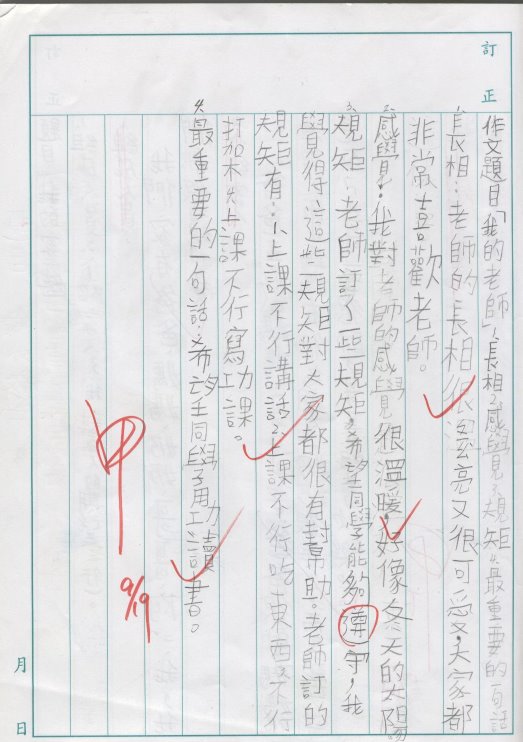 訂正
作文題目「我的老師」1.長相2.感覺3.規矩4.最重要的一句話
1.長相:老師的長相很漂亮又很可愛,大家都
非常喜歡老師。
2.感覺:我對老師的感覺很溫暖,好像冬天的太陽
3.規矩:老師訂了一些規矩,希望同學能夠遵守,我
覺得這些規矩對大家都很有幫助。老師訂的
規矩有:1.上課不行講話2.上課不行吃東西3.不行
打架4.上課不行寫功課。
4.最重要的一句話:希望同學用功讀書。
甲
9/19
月 日